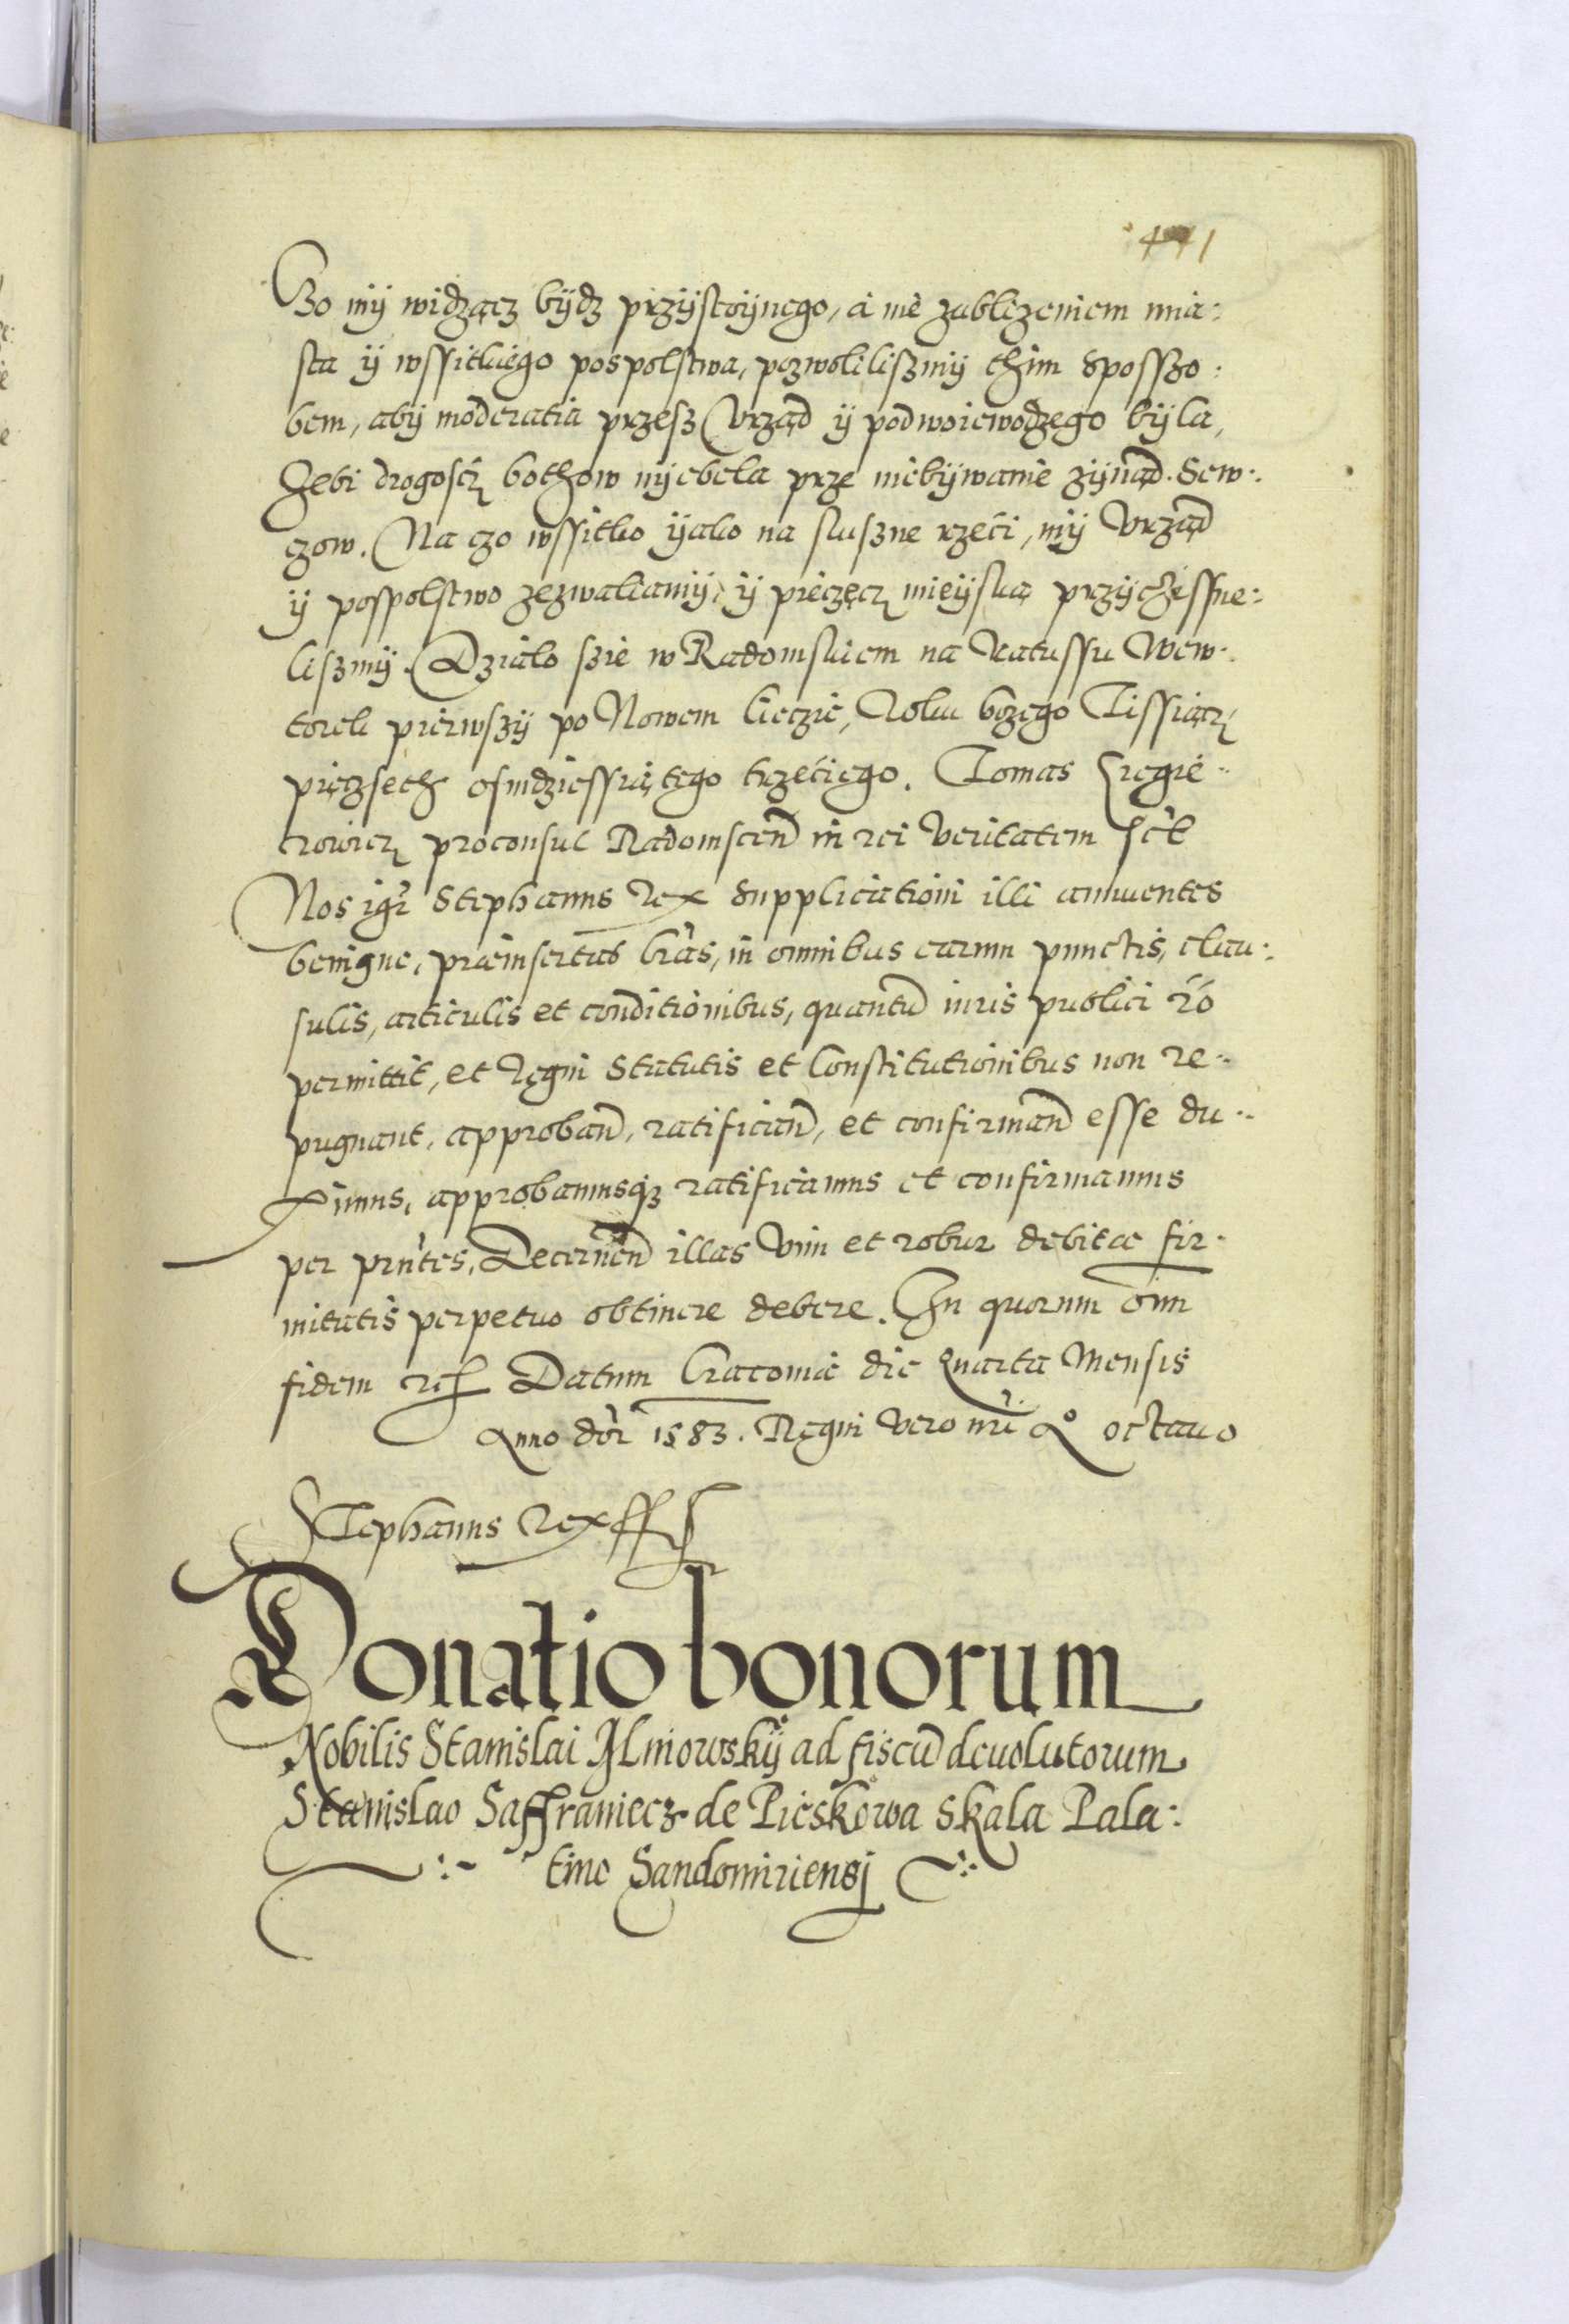 441
Czo mÿ widzącz bÿdz przÿstoÿnego, a nie zablizeniem mia:
sta ÿ wssitkiego pospolstwa, pozwoliliszmÿ thim sposszo:
bem, abÿ moderatia przesz Vrząd ÿ podwoiewodzego bÿla,
Zebi drogoscz bothow nÿebela prze niebÿwanie zÿnąd. Sew:
czow. Na czo wssitko ÿako na sluszne rzeci, mÿ Vrząd
ÿ pospolstwo zezwaliamÿ, ÿ pieczęcz mieÿską przÿczissne:
liszmÿ. Dzialo szie w Radomskiem na Ratussu Wew:
torek pierwszÿ po Nowem lieczie, Roku bozego Tissiącz
pięczseth osmdziessiątego trzeciego. Tomas
proconsul Radomscen̄ in rei veritatem sc̄t
Nos igr̄ Stephanus Rex supplicationi illi annuentes
benigne, praeinsertas lr̄as, in omnibus earum punctis, clau:
sulis, articulis et conditionibus, quantū iuris publici rō
permittit, et Regni Statutis et Constitutionibus non re:
pugnant, approban̄, ratifican̄, et confirman̄ esse du:
ximus, approbamusq̨ ratificamus et confirmamus
per prn̄tes, Decernen̄ illas vim et robur debitae fir:
mitatis perpetuo obtinere debere. In quorum om̄
fidem etc. Datum Cracoviae die Quarta Mensis
Anno dn̄i 1583. Regni vero nr̄i Aº octauo
Stephanus Rex sst
Donatio bonorum
Nobilis Stanislai Ilniowskÿ ad fiscū deuolutorum
Stanislao Saffraniecz de Pieskowa Skala Pala:
tino Sandomiriensj